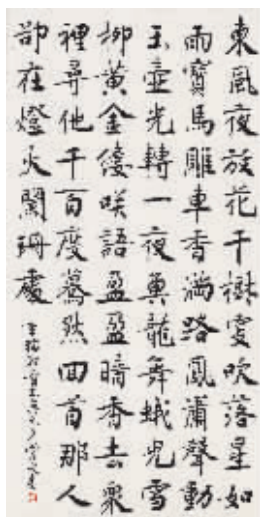 東風夜放花千樹更吹落星如
雨寶馬雕車香滿路鳳簫聲動
玉壺光轉一夜魚龍舞蛾兒雪
柳黃金縷咲語盈盈暗香去衆
裡尋他千百度驀然回首那人
卻在燈火闌珊處